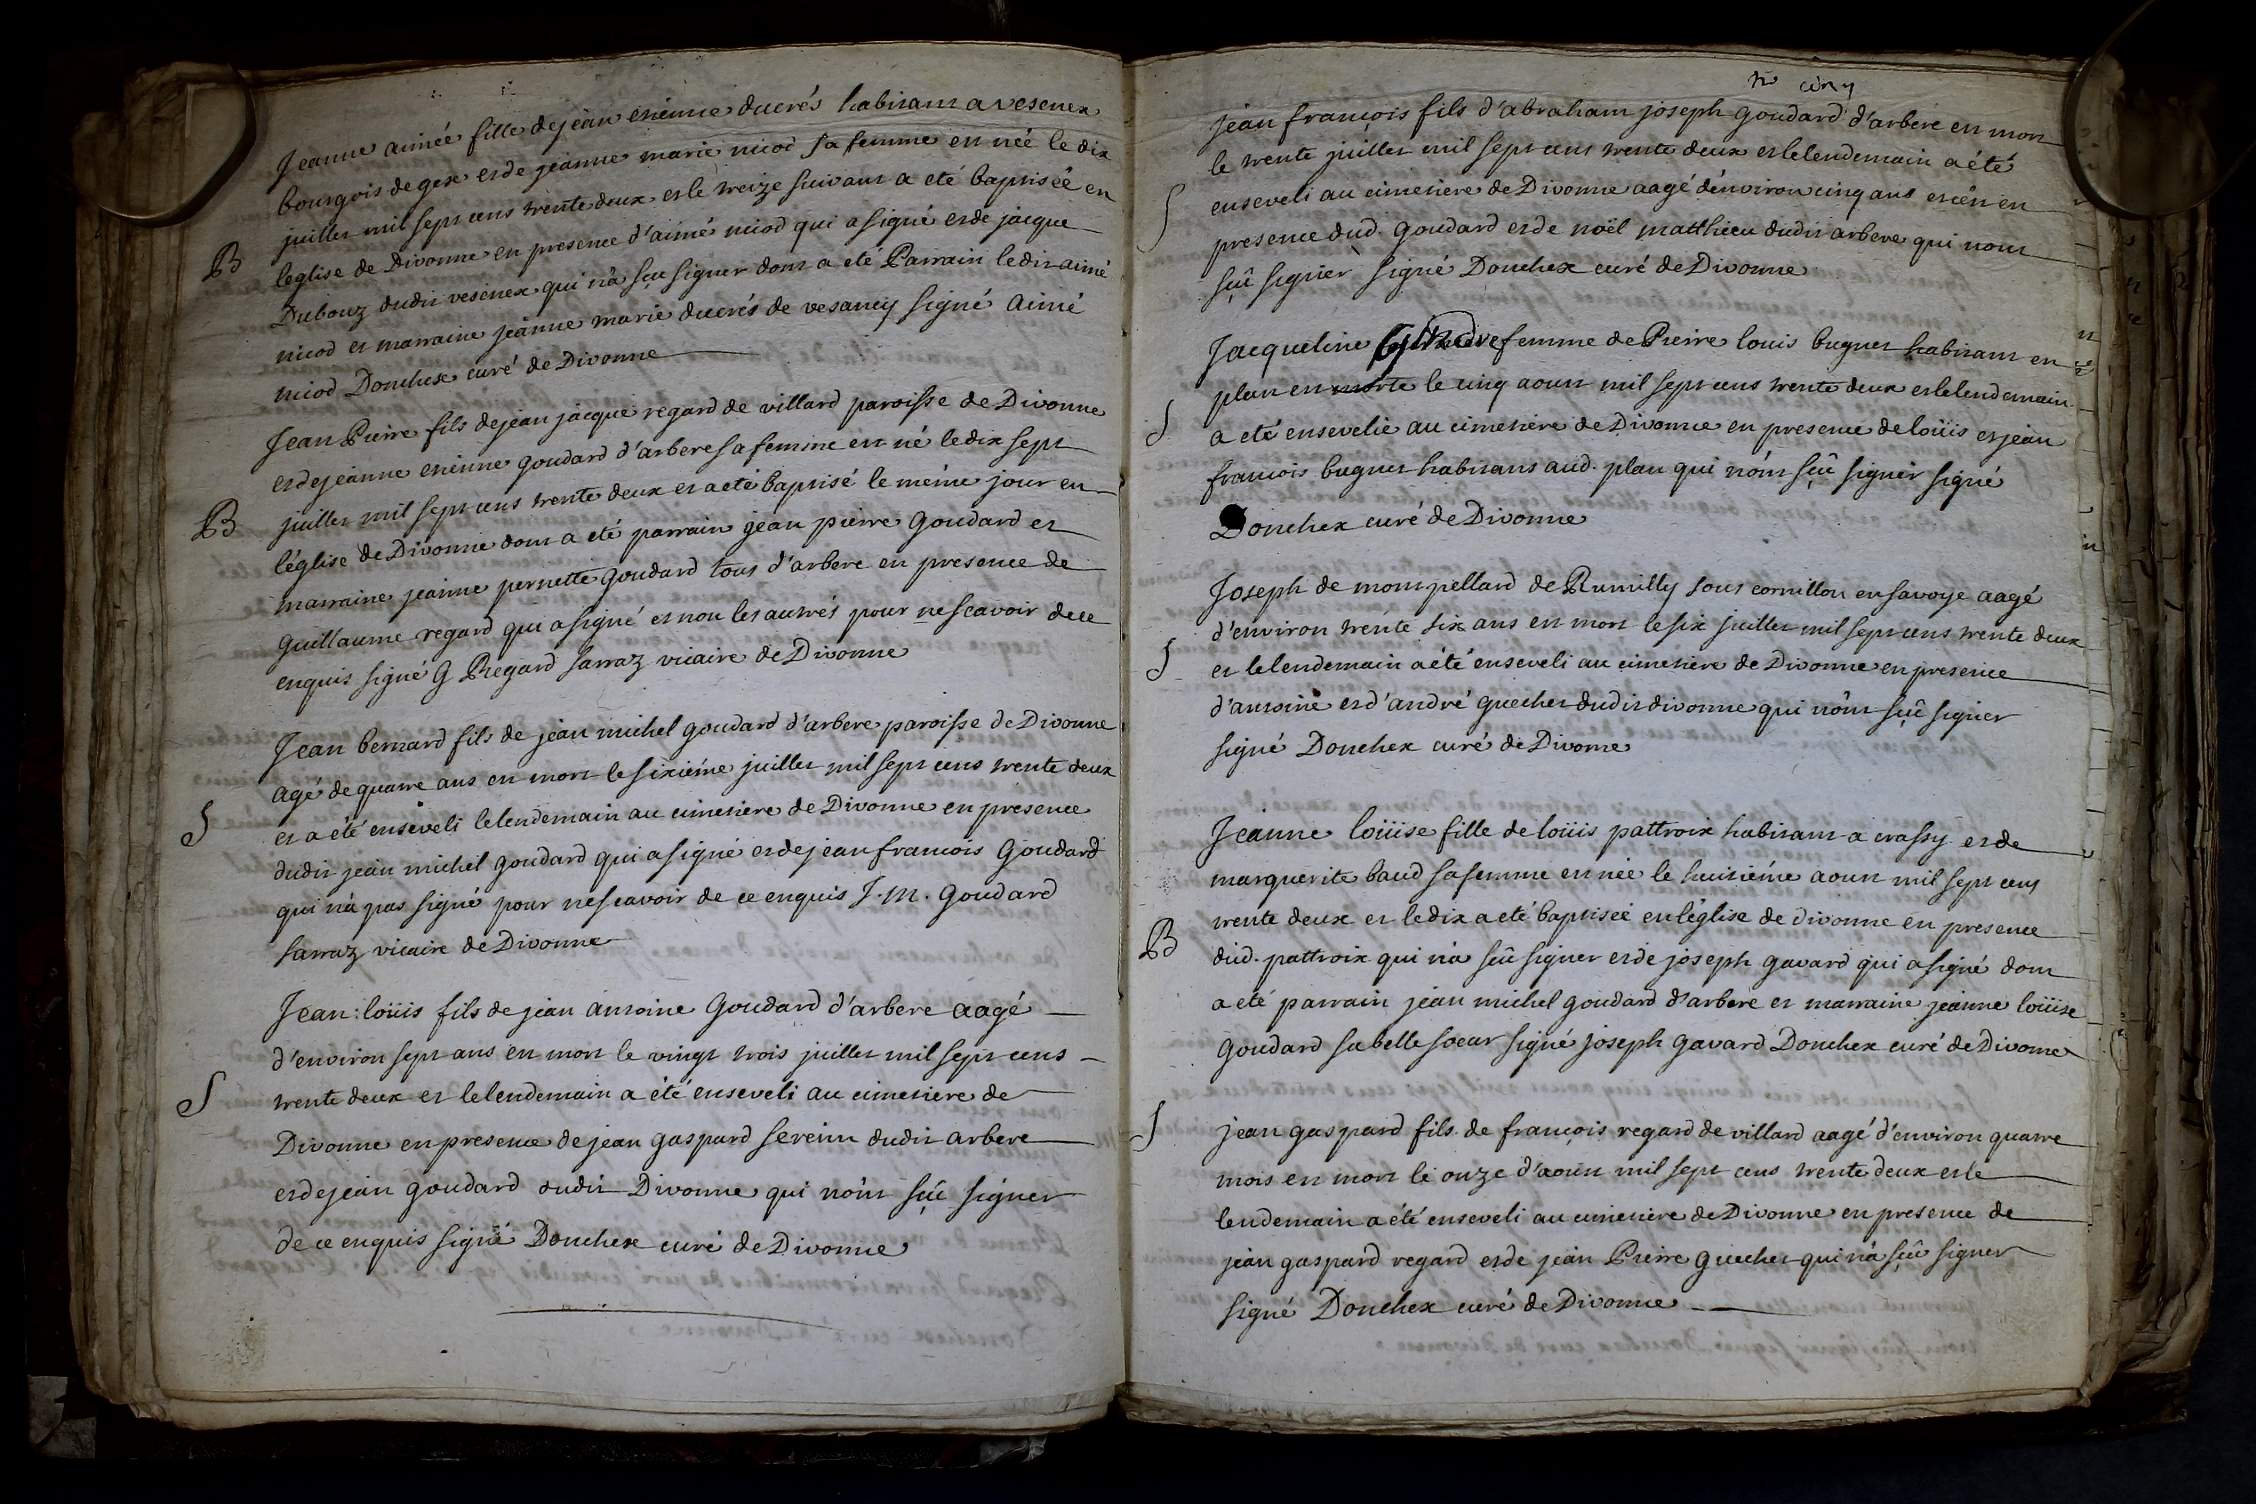 Jeanne aimée fille de jean etienne ducrés habitant a vesenex
bourgois de gex et de jeanne marie nicod sa femme est née le dix
juillet mil sept cens trente deux et le treize suivant a eté baptisée en
B
leglise de Divonne en presence d'aimé nicod qui a signé et de jacque
Dubouz dudit vesenex qui n'a sçu signer dont a eté Parrain ledit aimé
nicod et marraine jeanne marie ducrés de vesancy signé aimé
nicod Donchex curé de Divonne
Jean Pierre fils de jean jacque regard de villard paroisse de Divonne
et de jeanne etienne goudard d'arbere sa femme est né le dix sept
juillet mil sept cens trente deux et a eté baptisé le méme jour en
B
léglise de Divonne dont a eté parrain jean pierre goudard et
marraine jeanne pernette goudard tous d'arbere en presence de
guillaume regard qui a signé et non les autres pour ne scavoir de ce
enquis signé G Regard Sarraz vicaire de Divonne
Jean bernard fils de jean michel goudard d'arbere paroisse de Divonne
agé de quatre ans est mort le sixiéme juillet mil sept cens trente deux
S
et a été enseveli le lendemain au cimetiere de Divonne en presence
dudit jean michel goudard qui a signé et de jean francois Goudard
qui n'a pas signé pour ne scavoir de ce enquis J. M. Goudard
Sarraz vicaire de Divonne
Jean: loüis fils de jean antoine Goudard d'arbere aagé
d'environ sept ans est mort le vingt trois juillet mil sept cens
S
trente deux et le lendemain a été enseveli au cimetiere de
Divonne en presence de jean gaspard sereim dudit arbere
et de jean goudard dudit Divonne qui n'ont sçû signer
de ce enquis signé Donchex curé de Divonne
jean françois fils d'abraham joseph goudard d'arbere est mort
le trente juillet mil sept cens trente deux et le lendemain a été
S
enseveli au cimetiere de Divonne aagé d'environ cinq ans et c'est en
presence dud. Goudard et de noël matthieu dudit arbere qui n'ont
sçû signer signé Donchex curé de Divonne
Jacqueline femme de Pierre louis bugnet habitant en
plan est morte le cinq aoust mil sept cens trente deux et le lendemain
S
a eté ensevelie au cimetiere de Divonne en presence de loüis et jean
francois bugnet habitans aud. plan qui n'ont sçû signer signé
Donchex curé de Divonne
Joseph de mompellard de Rumilly sous cornillon en savoye aagé
d'environ trente six ans est mort le six juillet mil sept cens trente deux
S
et le lendemain a été enseveli au cimetiere de Divonne en presence
d'antoine et d'andré guechet dudit divonne qui n'ont sçû signer
signé Donchex curé de Divonne
Jeanne loüise fille de loüis pattroix habitant a crassy et de
marguerite baud sa femme est née le huitiéme aoust mil sept cens
trente deux et le dix a eté baptiseé en léglise de divonne en presence
B
dud. pattroix qui n'a sçû signer et de joseph gavard qui a signé dont
a eté parrain jean michel goudard d'arbere et marraine jeanne loüise
Goudard sa belle soeur signé joseph Gavard Donchex curé de Divonne
S
jean gaspard fils de françois regard de villard aagé d'environ quatre
mois est mort le onze d'aoust mil sept cens trente deux et le
lendemain a été enseveli au cimetiere de Divonne en presence de
jean gaspard regard et de jean Pierre guechet qui n'a sçû signer
signé Donchex curé de Divonne